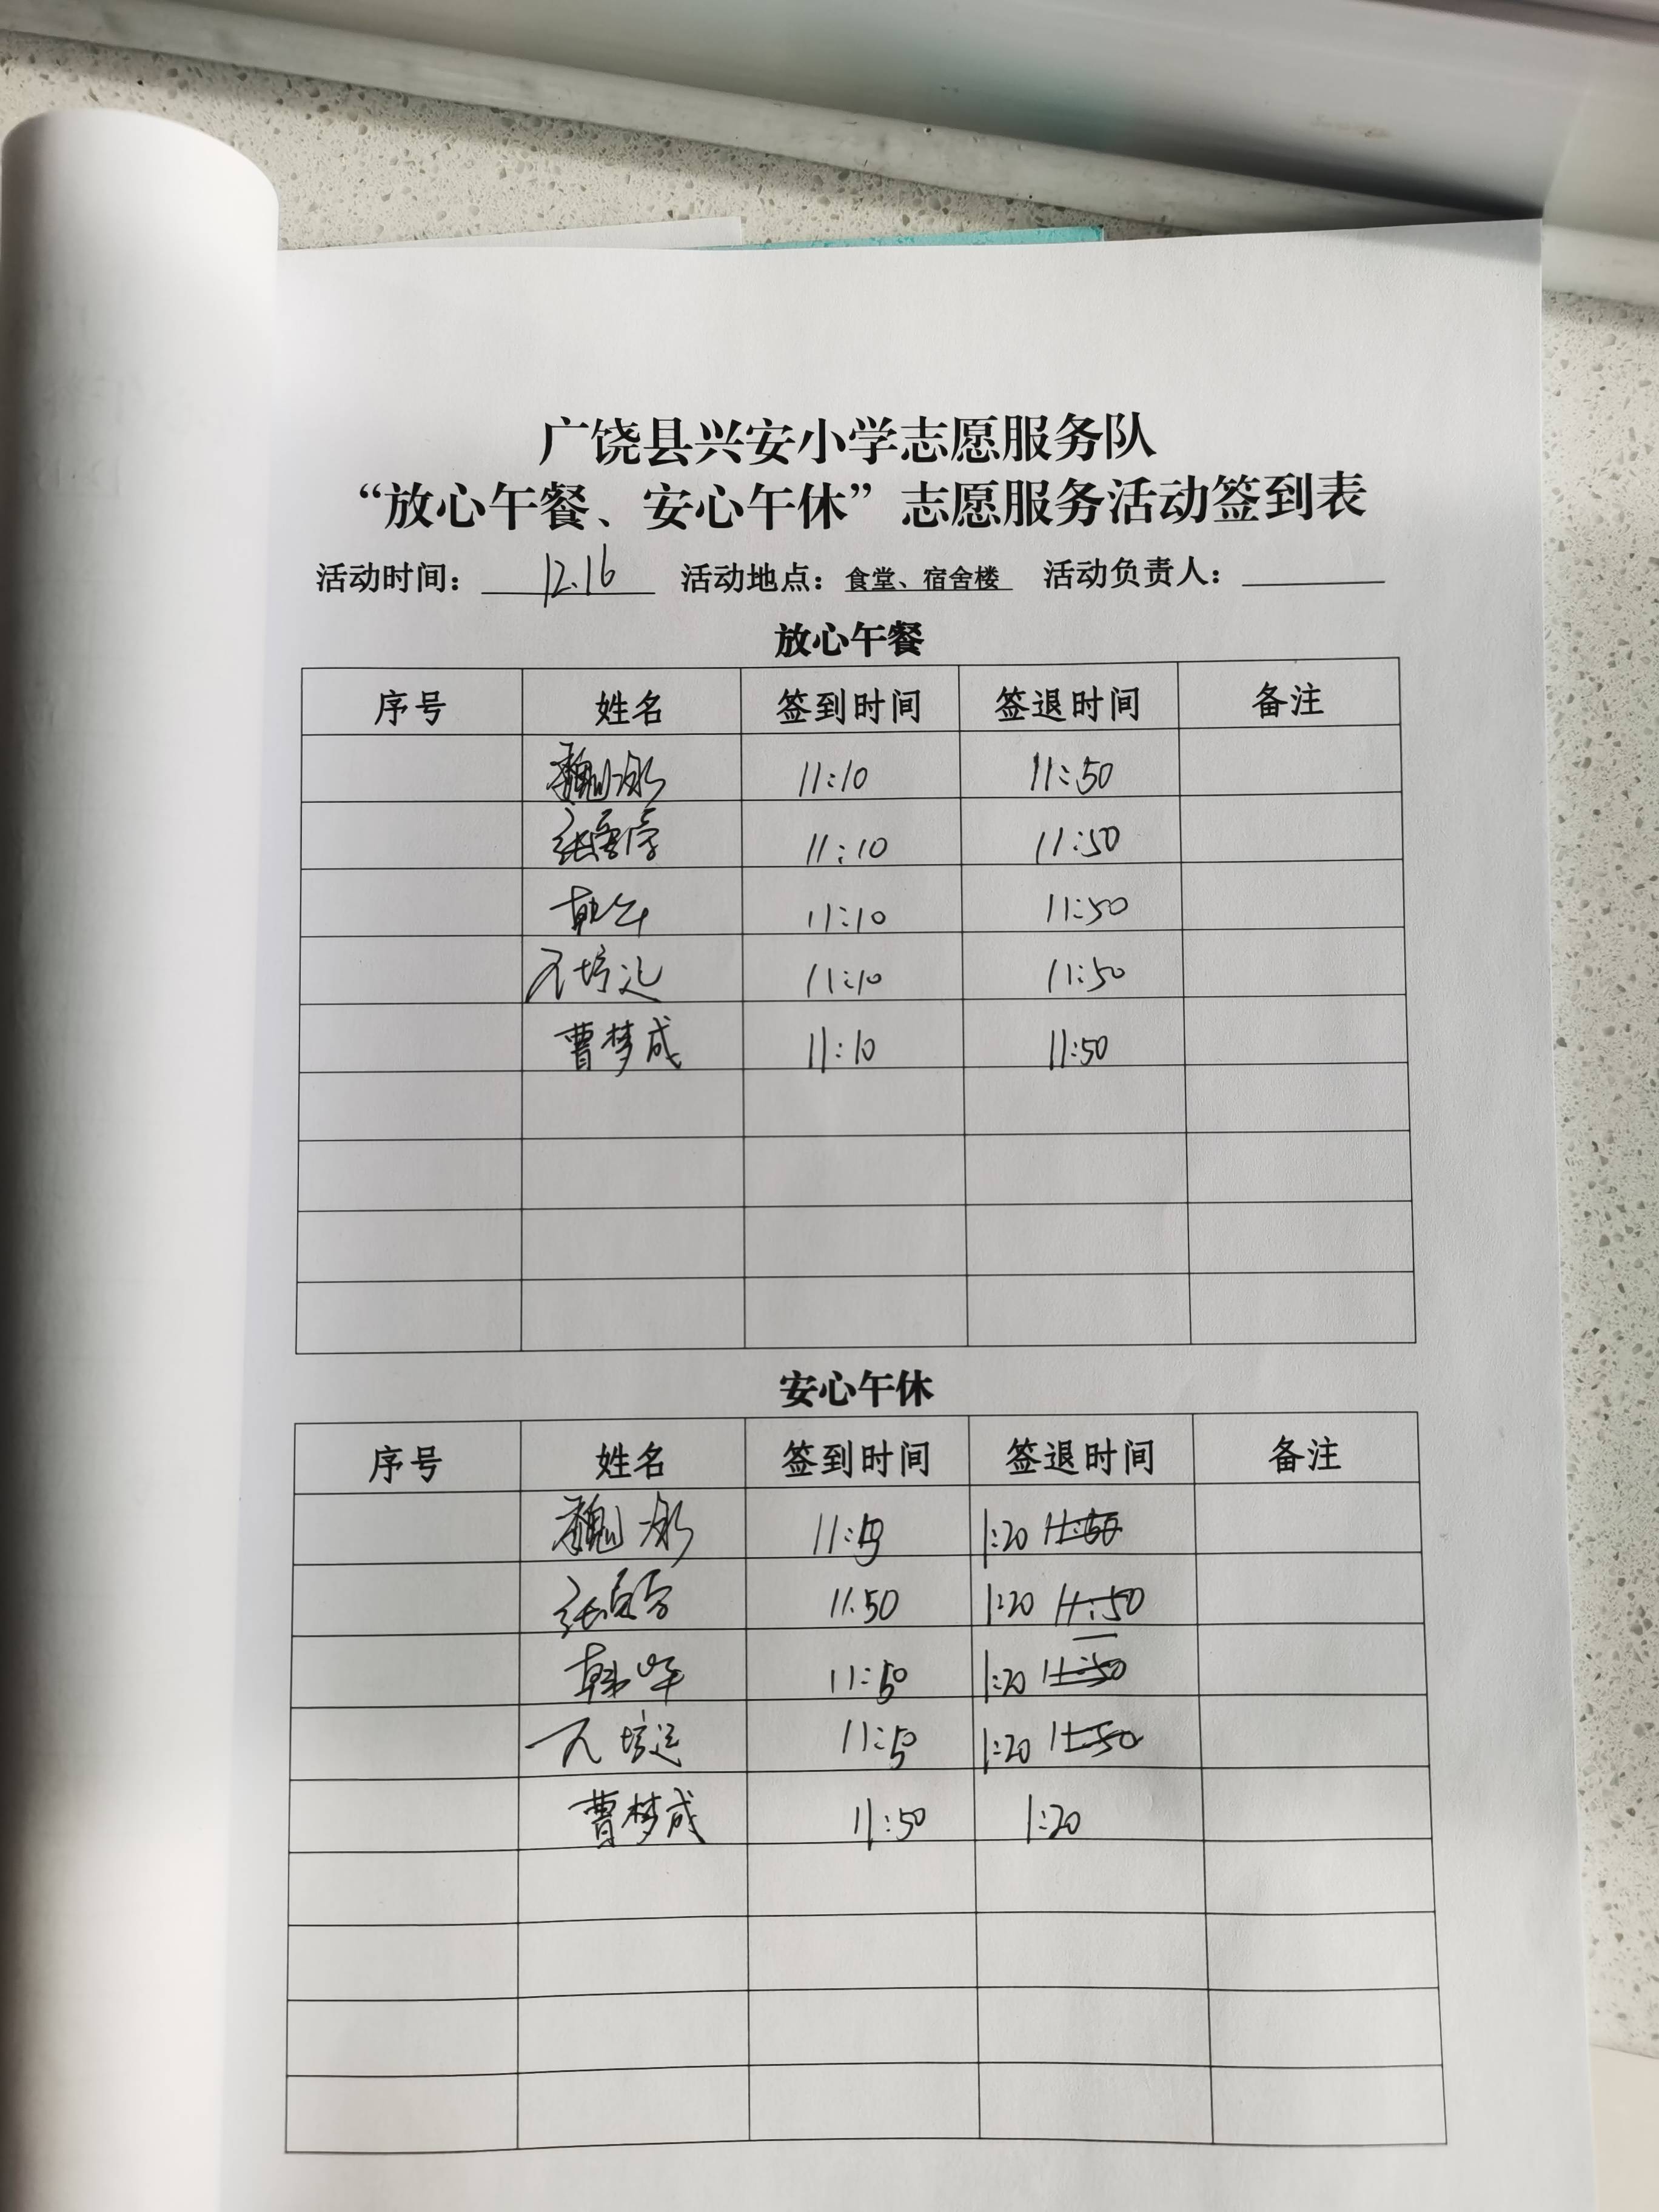 广饶县兴安小学志愿服务队
“放心午餐、安心午休”志愿服务活动签到表
活动时间： 12.16 活动地点：食堂、宿舍楼 活动负责人：
放心午餐
序号 姓名 签到时间 签退时间 备注
魏冰 11:10 11:50
张 11:10 11:50
韩 11:10 11:50
培 11:10 11:50
曹梦成 11:10 11:50
安心午休
序号 姓名 签到时间 签退时间 备注
魏冰 11:50 1:20
张 11.50 1:20 11:50
韩 11:50 1:20 11:50
培运 11:50 1:20 11:50
曹梦成 11:50 1:20